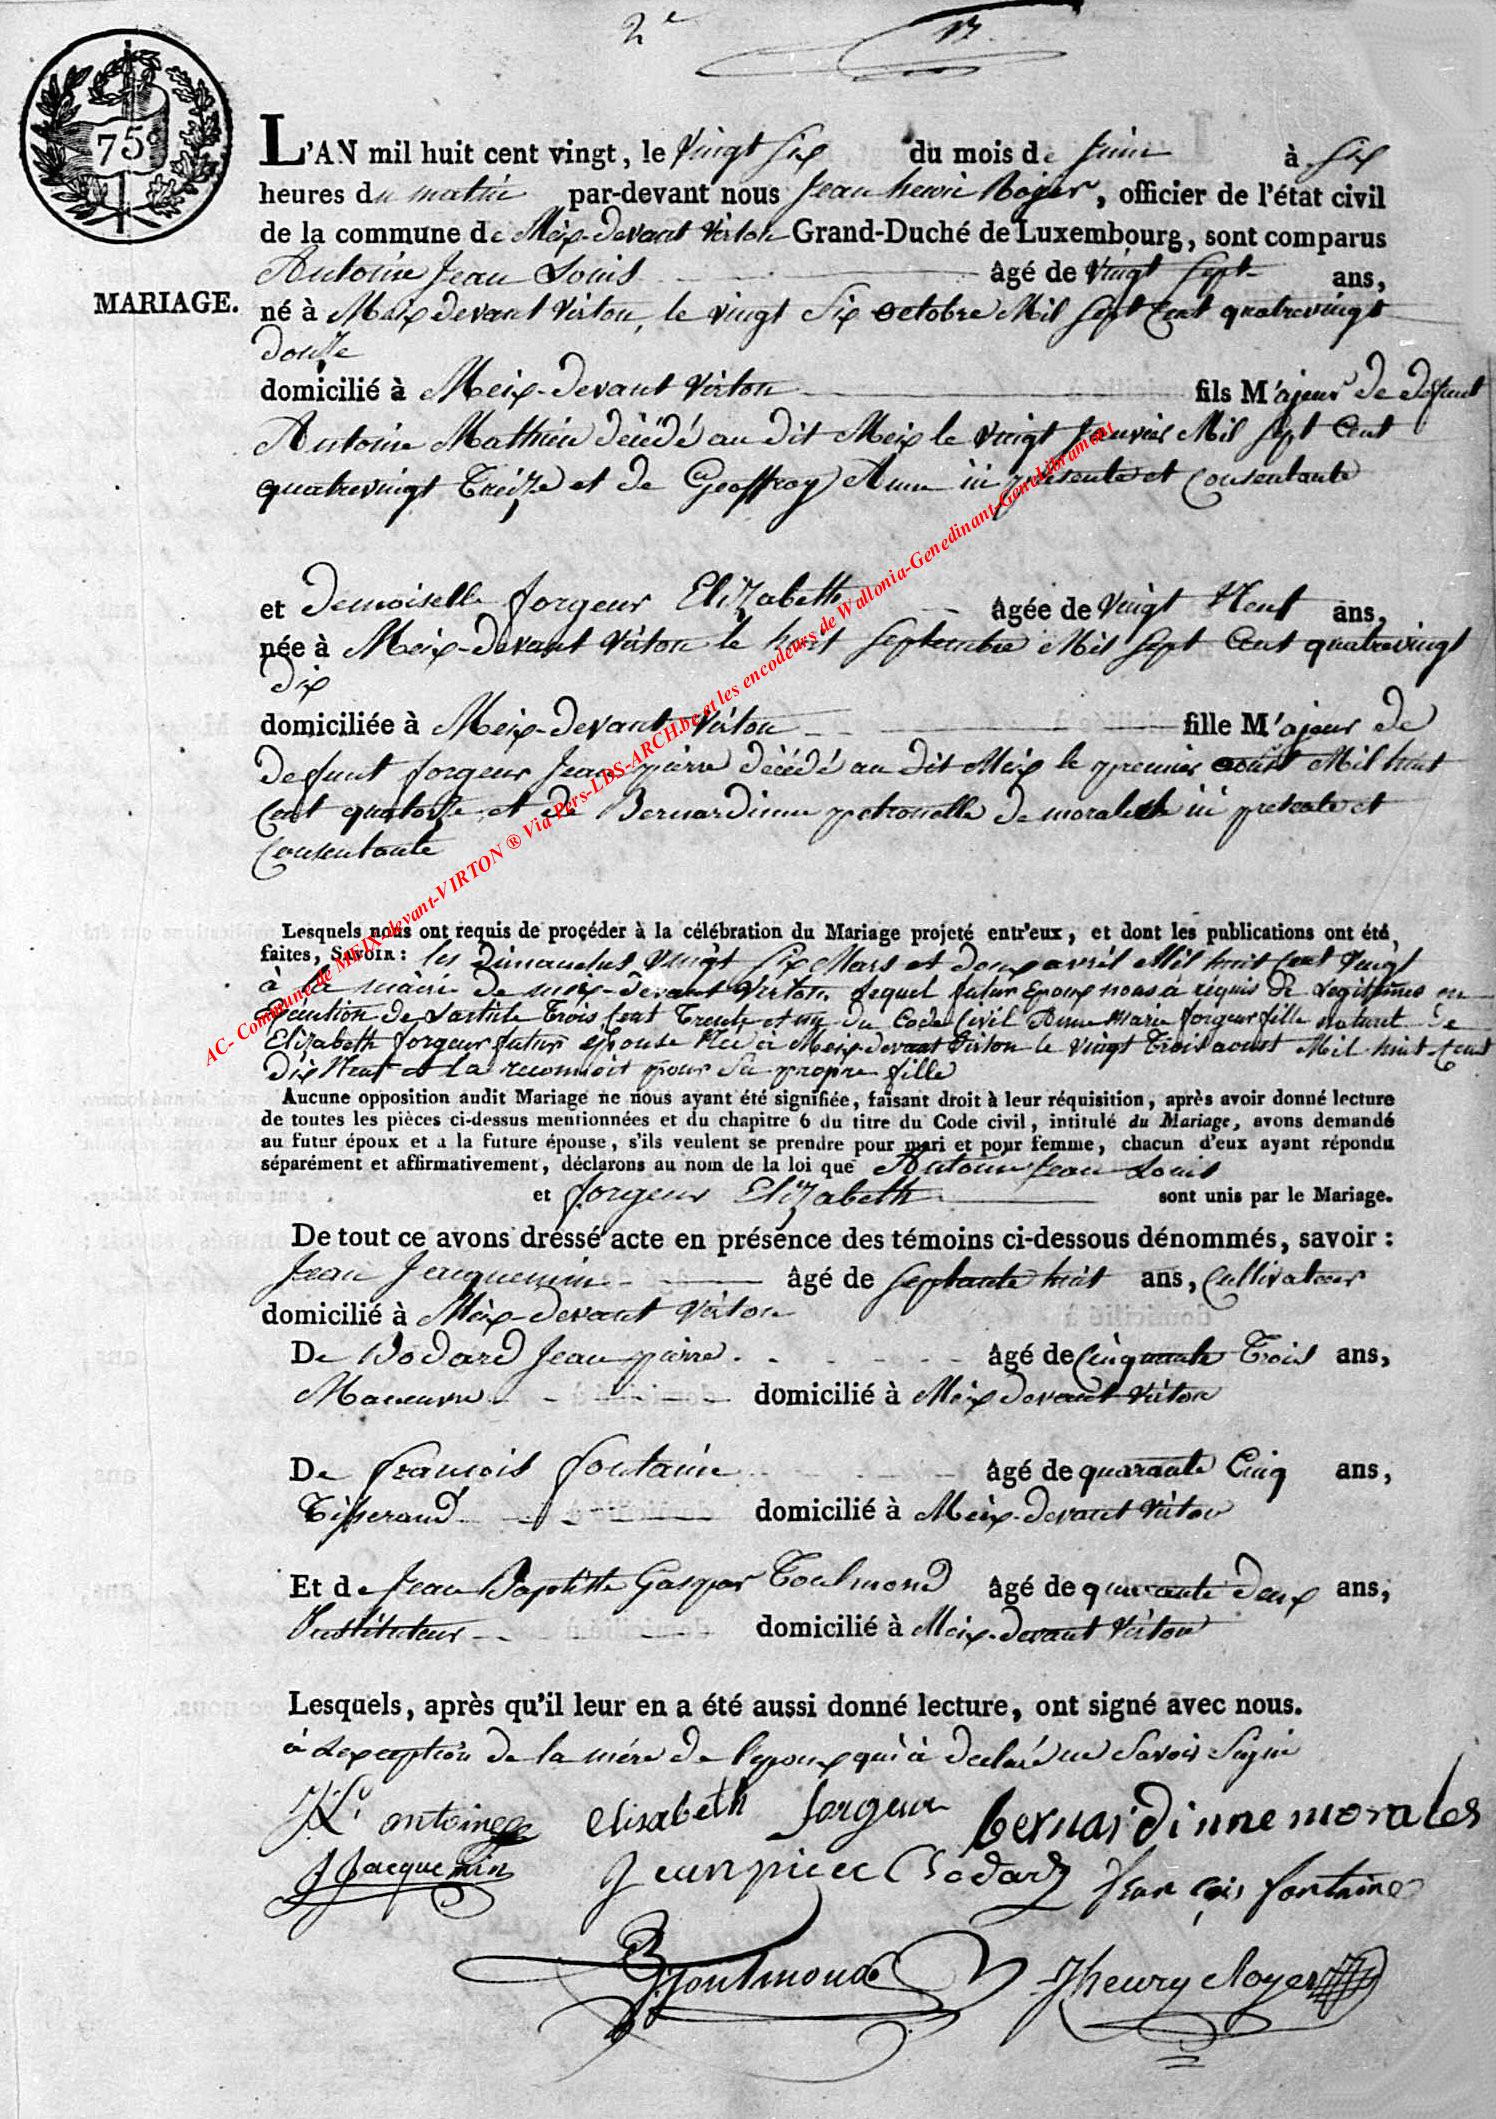 2e
75c
L'AN mil huit cent vingt, le vingt six du mois de juin à six
heures du matin par-devant nous Jean henri Roger, officier de l'état civil
de la commune de Meix-devant Virton Grand-Duché de Luxembourg, sont comparus
Antoine Jean Louis âgé de vingt sept ans,
MARIAGE.
né à Meix devant Virton, le vingt six octobre Mil sept Cent quatrevingt
douze
domicilié à Meix-devant Virton fils M'ajeur de defunt
Antoine Mathieu décédé au dit Meix le vingt janvier Mil sept Cent
quatrevingt Treize et de Geoffroy Anne ici présente et Consentante
et Demoiselle forgeur Elizabeth âgée de vingt Neuf ans,
née à Meix-devant Virton le huit septembre Mil sept Cent quatrevingt
Dix
domiciliée à Meix-devant Virton fille M'ajeur de
defunt forgeur Jean pierre décédé au dit Meix le premier aoust Mil huit
Cent quatorze et de Bernardinne petronelle de morales ici presente et
Consentante
Lesquels nous ont requis de procéder à la célébration du Mariage projeté entr'eux, et dont les publications ont été
faites, SAVOIR: les Dimanches vingt six Mars et deux avril Mil huit Cent vingt
à la mairie de meix-devant Virton. lequel futur Epoux nous à requis de Legitimer en
Execution de l'article Trois Cent Trente et un du Code Civil Anne Marie forgeur fille naturel de
Elizabeth forgeur futur épouse Née à Meix devant Virton le vingt Trois aoust Mil huit Cent
Dix Neuf et la reconnoit pour sa propre fille
Aucune opposition audit Mariage ne nous ayant été signifiée, faisant droit à leur réquisition, après avoir donné lecture
de toutes les pièces ci-dessus mentionnées et du chapitre 6 du titre du Code civil, intitulé du Mariage, avons demandé
au futur époux et à la future épouse, s'ils veulent se prendre pour mari et pour femme, chacun d'eux ayant répondu
séparément et affirmativement, déclarons au nom de la loi que Antoine Jean Louis
et forgeur Elizabeth sont unis par le Mariage.
De tout ce avons dressé acte en présence des témoins ci-dessous dénommés, savoir:
Jean Jacquemin âgé de septante huit ans, Cultivateur
domicilié à Meix-devant Virton
De Bodard Jean pierre âgé de Cinquante Trois ans,
Maneuvre domicilié à Meix devant Virton
De francois fontaine âgé de quarante Cinq ans,
Tisserand domicilié à Meix-devant Virton
Et de Jean Baptiste Gaspar Toulmond âgé de quarante deux ans,
Instituteur domicilié à Meix-devant Virton
Lesquels, après qu'il leur en a été aussi donné lecture, ont signé avec nous.
à lexception de la mére de l'epoux qui à declaré ne savoir signé
JLs antoine elisabeth forgeur bernardinne morales
J Jacquemin Jeanpierre Bodard françois fontaine
Toulmond Jhenry Roger
AC- Commune de MEIX-devant-VIRTON ® Via Pers-LDS-ARCH.be et les encodeurs de Wallonia-Genedinant-GeneLibramont